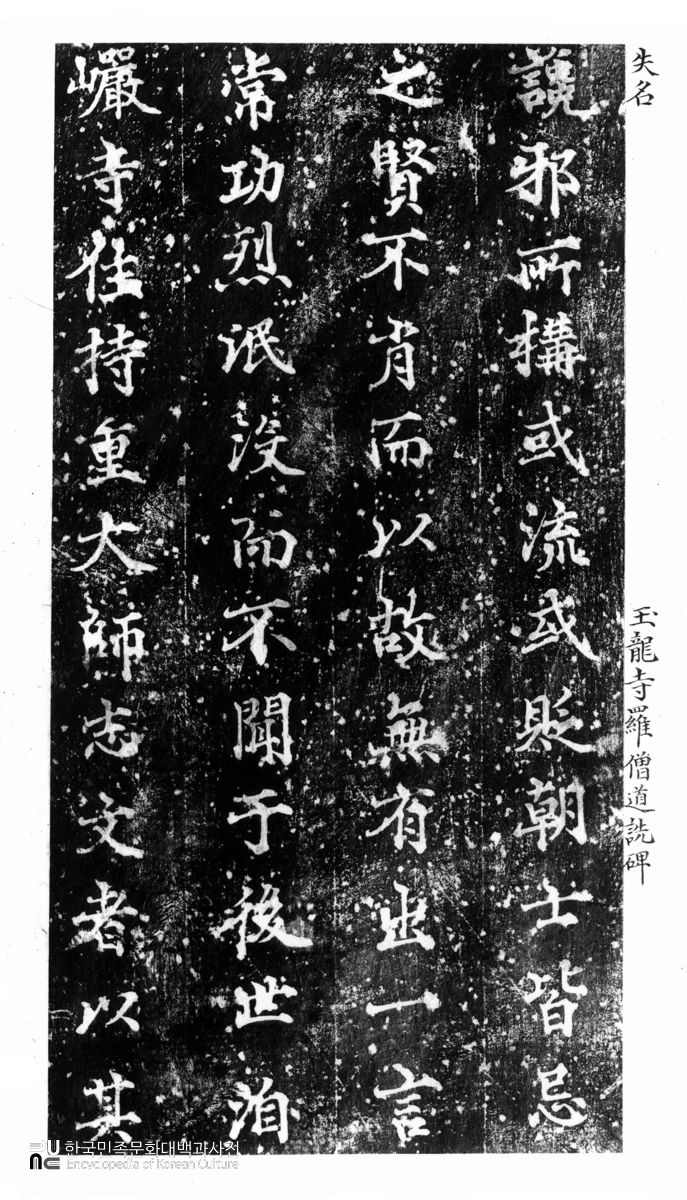 失名
玉龍寺羅僧道詵碑
讒邪所構或流或貶朝士皆忌
之賢不肖而以故無有出一言
常功烈泯没而不聞于後世洎
巗寺住持重大師志文者以其
한국민족문화대백과사전
Encyclopedia of Korean Culture